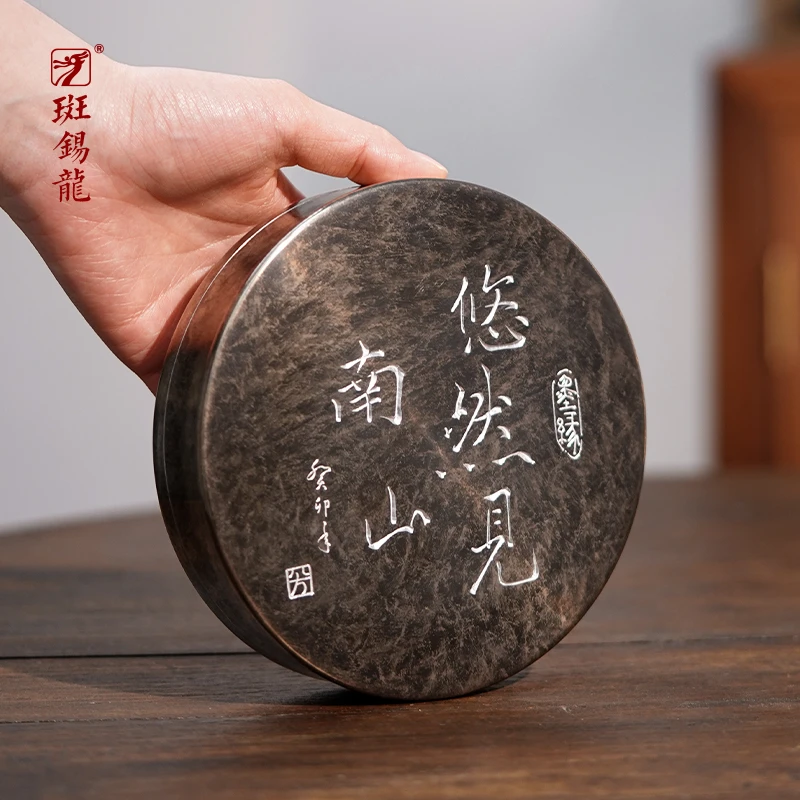 ®
斑錫龍
墨缘
悠然見
南山
癸卯年